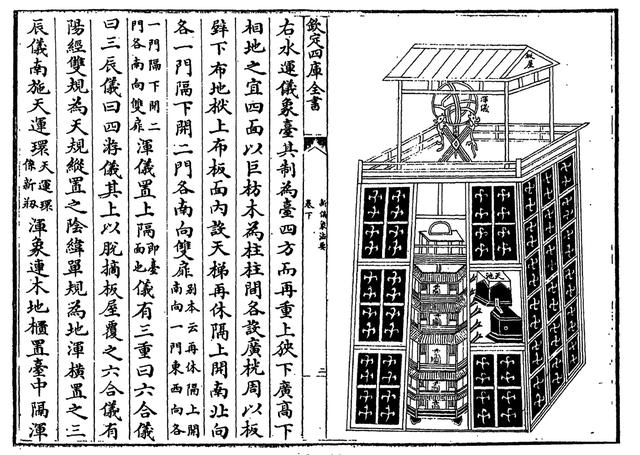 板屋
渾儀
天池
欽定四庫全書
新儀象法要
卷下
二
右水運儀象臺其制為臺四方而再重上狹下廣高下
相地之宜四面以巨枋木為柱柱間各設廣桄周以板
壁下布地栿上布板面內設天梯再休隔上開南北向
各一門隔下開二門各南向雙扉別本云再休隔上開南向一門東西向各
一門隔下開二門各南向雙扉渾儀置上隔即臺面也儀有三重曰六合儀
曰三辰儀曰四游儀其上以脫摘板屋覆之六合儀有
陽經雙規為天規縱置之陰緯單規為地渾橫置之三
辰儀南施天運環天運環係新剏渾象連木地櫃置臺中隔渾